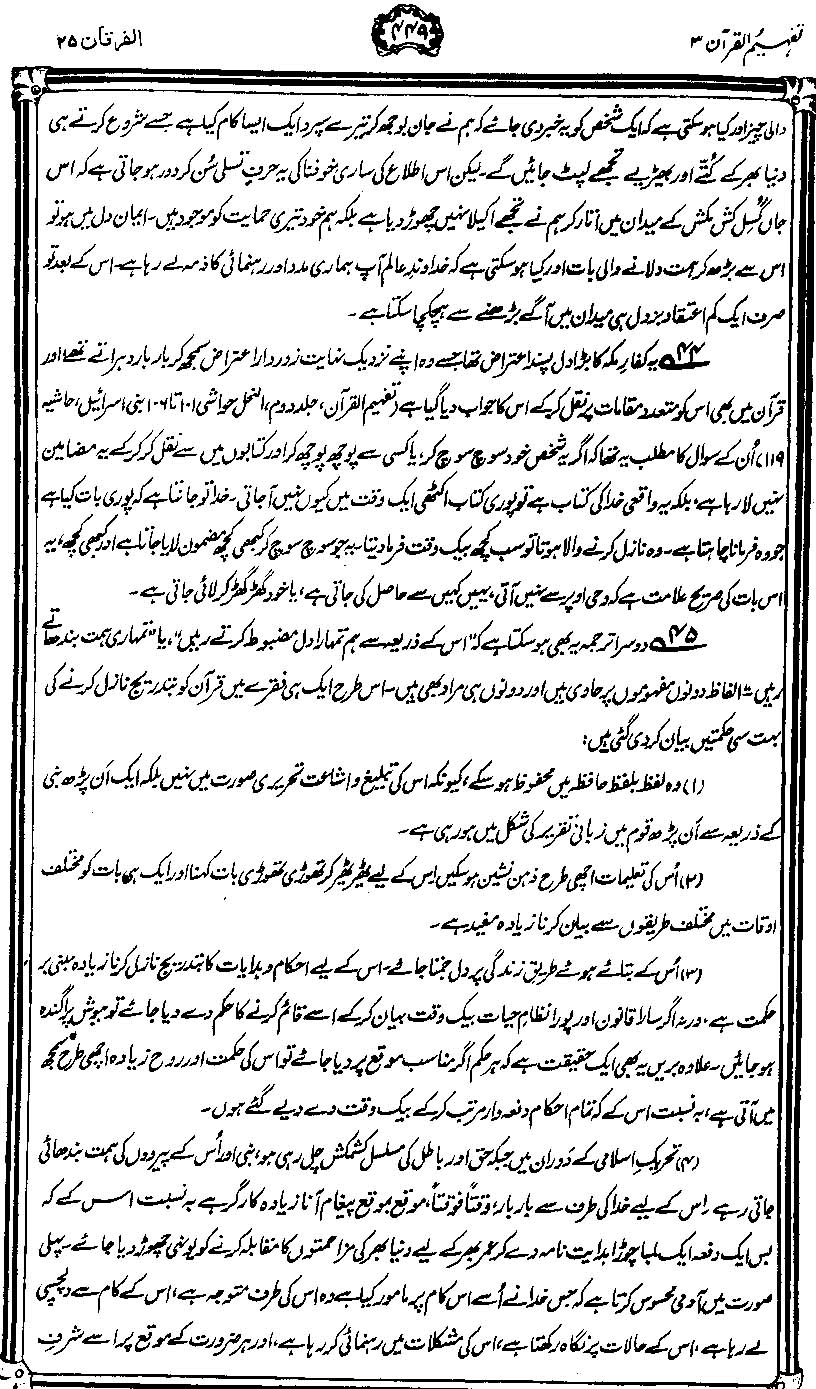 تفہیم القرآن ۳
۴۴۹
الفرقان ۲۵
والی چیز اور کیا ہو سکتی ہے کہ ایک شخص کو یہ خبر دی جائے کہ ہم نے جان بوجھ کر تیرے سپرد ایک ایسا کام کیا ہے جسے شروع کرتے ہی
دنیا بھر کے کُتّے اور بھیڑیے تجھے لپٹ جائیں گے۔ لیکن اس اطلاع کی ساری خوفناکی یہ حرفِ تسلی سُن کر دور ہو جاتی ہے کہ اس
جاں گُسل کش مکش کے میدان میں اُتار کر ہم نے تجھے اکیلا نہیں چھوڑ دیا ہے بلکہ ہم خود تیری حمایت کو موجود ہیں۔ ایمان دل میں ہو تو
اس سے بڑھ کر ہمت دلانے والی بات اور کیا ہو سکتی ہے کہ خداوندِ عالم آپ ہماری مدد اور رہنمائی کا ذمہ لے رہا ہے۔ اس کے بعد تو
صرف ایک کم اعتقاد بزدل ہی میدان میں آگے بڑھنے سے ہچکچا سکتا ہے۔
۴۴ یہ کفارِ مکہ کا بڑا دل پسند اعتراض تھا جسے وہ اپنے نزدیک نہایت زوردار اعتراض سمجھ کر بار بار دہراتے تھے، اور
قرآن میں بھی اس کو متعدد مقامات پر نقل کرکے اس کا جواب دیا گیا ہے (تفہیم القرآن، جلد دوم، النحل حواشی ۱۰۱ تا ۱۰۶ بنی اسرائیل، حاشیہ
۱۱۹) اُن کے سوال کا مطلب یہ تھا کہ اگر یہ شخص خود سوچ سوچ کر، یا کسی سے پوچھ پوچھ کر اور کتابوں میں سے نقل کر کرکے یہ مضامین
نہیں لا رہا ہے، بلکہ یہ واقعی خدا کی کتاب ہے تو پوری کتاب اکٹھی ایک وقت میں کیوں نہیں آجاتی۔ خدا تو جانتا ہے کہ پوری بات کیا ہے
جو وہ فرمانا چاہتا ہے۔ وہ نازل کرنے والا ہوتا تو سب کچھ بیک وقت فرما دیتا۔ یہ جو سوچ سوچ کر کبھی کچھ مضمون لایا جاتا ہے اور کبھی کچھ، یہ
اس بات کی صریح علامت ہے کہ وحی اوپر سے نہیں آتی، یہیں کہیں سے حاصل کی جاتی ہے، یا خود گھڑ گھڑ کر لائی جاتی ہے۔
۴۵ دوسرا ترجمہ یہ بھی ہو سکتا ہے کہ "اس کے ذریعہ سے ہم تمہارا دل مضبوط کرتے رہیں"، یا "تمہاری ہمت بندھاتے
رہیں"۔ الفاظ دونوں مفہوموں پر حاوی ہیں اور دونوں ہی مراد بھی ہیں۔ اس طرح ایک ہی فقرے میں قرآن کو بتدریج نازل کرنے کی
بہت سی حکمتیں بیان کر دی گئی ہیں:
(۱) وہ لفظ بلفظ حافظہ میں محفوظ ہو سکے، کیونکہ اس کی تبلیغ و اشاعت تحریری صورت میں نہیں بلکہ ایک اَن پڑھ نبی
کے ذریعہ سے اَن پڑھ قوم میں زبانی تقریر کی شکل میں ہو رہی ہے۔
(۲) اُس کی تعلیمات اچھی طرح ذہن نشین ہو سکیں اس کے لیے ٹھیر ٹھیر کر تھوڑی تھوڑی بات کہنا اور ایک ہی بات کو مختلف
اوقات میں مختلف طریقوں سے بیان کرنا زیادہ مفید ہے۔
(۳) اُس کے بتائے ہوئے طریقِ زندگی پر دل جمتا جائے۔ اس کے لیے احکام و ہدایات کا بتدریج نازل کرنا زیادہ مبنی بر
حکمت ہے، ورنہ اگر سارا قانون اور پورا نظامِ حیات بیک وقت بیان کرکے اسے قائم کرنے کا حکم دے دیا جائے تو ہوش پراگندہ
ہو جائیں۔ علاوہ بریں یہ بھی ایک حقیقت ہے کہ ہر حکم اگر مناسب موقع پر دیا جائے تو اس کی حکمت اور روح زیادہ اچھی طرح سمجھ
میں آتی ہے، بہ نسبت اس کے کہ تمام احکام دفعہ وار مرتب کرکے بیک وقت دے دیے گئے ہوں۔
(۴) تحریکِ اسلامی کے دَوران میں جبکہ حق اور باطل کی مسلسل کشمکش چل رہی ہو، نبی اور اُس کے پیرووں کی ہمت بندھائی
جاتی رہے۔ اس کے لیے خدا کی طرف سے بار بار، وقتاً فوقتاً، موقع موقع پیغام آنا زیادہ کارگر ہے بہ نسبت اس کے کہ
بس ایک دفعہ ایک لمبا چوڑا ہدایت نامہ دے کر عمر بھر کے لیے دنیا بھر کی مزاحمتوں کا مقابلہ کرنے کو یونہی چھوڑ دیا جائے۔ پہلی
صورت میں آدمی محسوس کرتا ہے کہ جس خدا نے اُسے اس کام پر مامور کیا ہے وہ اس کی طرف متوجہ ہے، اس کے کام سے دلچسپی
لے رہا ہے، اس کے حالات پر نگاہ رکھتا ہے، اس کی مشکلات میں رہنمائی کر رہا ہے، اور ہر ضرورت کے موقع پر اسے شرفِ